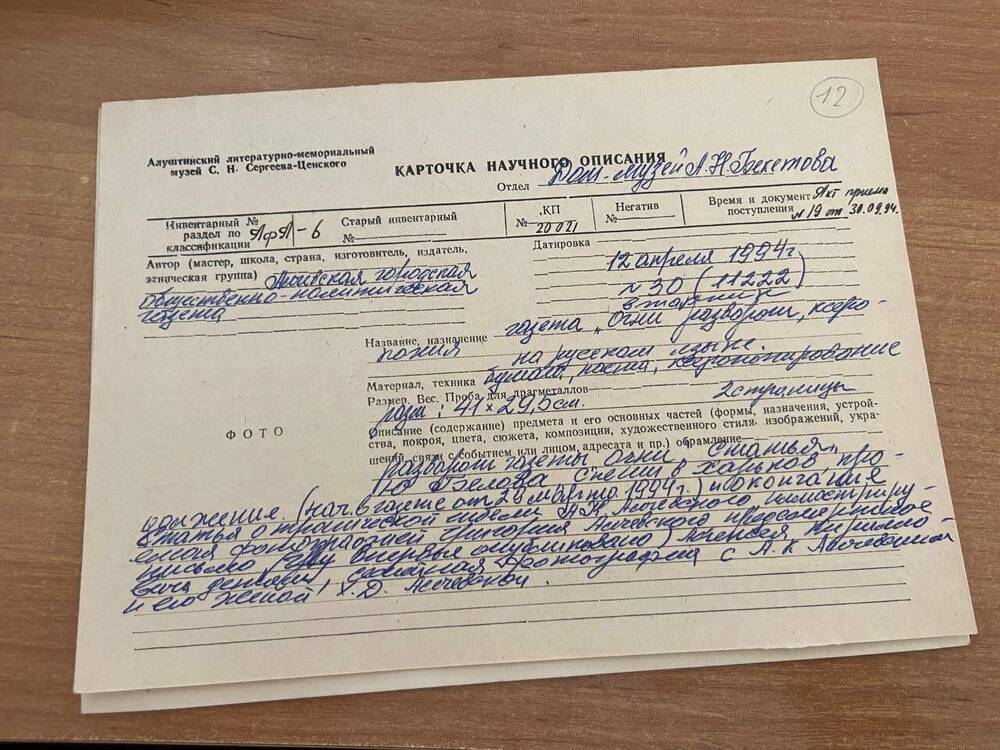 12
Алуштинский литературно-мемориальный
музей С. Н. Сергеева-Ценского
КАРТОЧКА НАУЧНОГО ОПИСАНИЯ
Отдел Дом-музей А.Н. Бекетова
Инвентарный №
раздел по
классификации АфА-6
Старый инвентарный
№
КП
№ 20021
Негатив
№
Время и документ
поступления Акт приема
№ 19 от 30.09.94.
Автор (мастер, школа, страна, изготовитель, издатель,
этническая группа) Алчевская городская
общественно-политическая
газета
Датировка
12 апреля 1994г
№ 30 (11222)
вторник
Название, назначение газета „Огни разворот, ксеро-
копия на русском языке.
Материал, техника бумага, паста, ксерокопирование
Размер. Вес. Проба для драгметаллов 2 страницы
разм: 41 × 29,5 см.
Описание (содержание) предмета и его основных частей (формы, назначения, устрой-
ства, покроя, цвета, сюжета, композиции, художественного стиля изображений, укра-
шений, связи с событием или лицом, адресата и пр.) обрамление
ФОТО
разворот газеты Огни, статья
Ю Белова Спеши в Харьков, про-
должение. (нач. в газете от 26 марта 1994г.) и окончание
Статья о трагической гибели А.К Алчевского иллюстриру-
емая фотографией Григория Алчевского предсмертное
письмо впервые опубликовано) Алексея Кирилло-
вича фотография с А. К Алчевским
и его женой Х.Д. Алчевской.